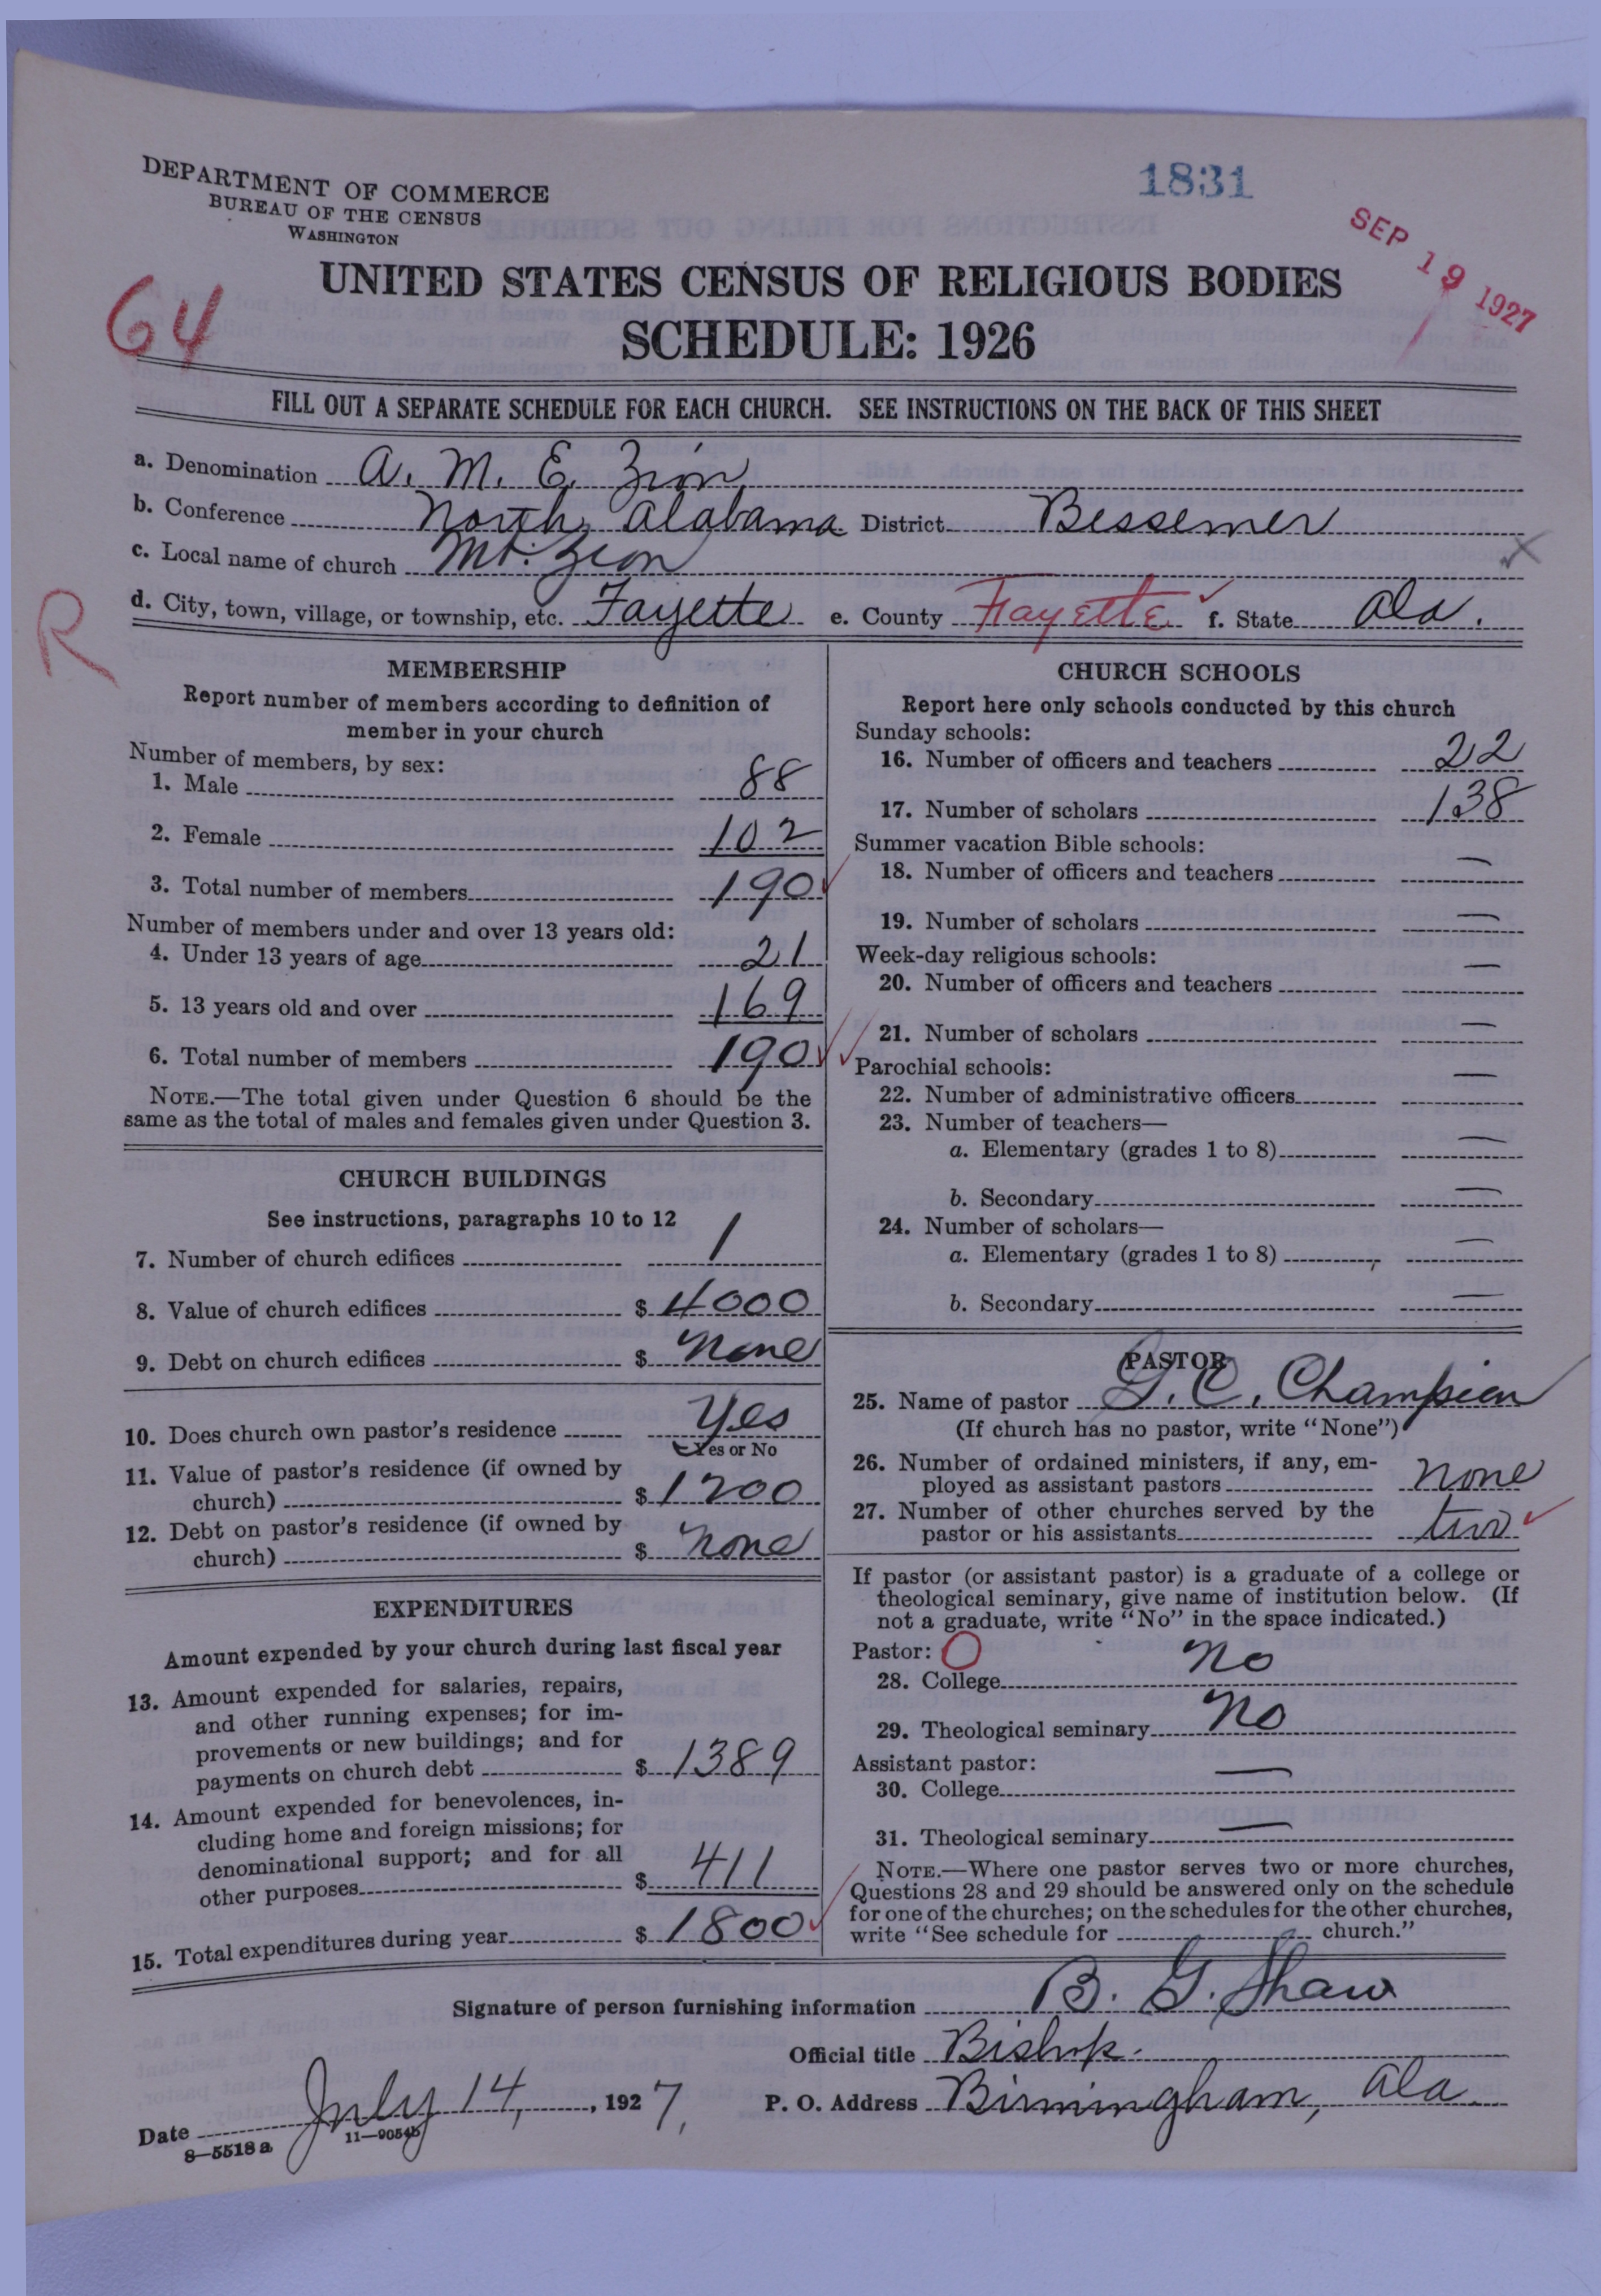 DEPARTMENT OF COMMERCE
BUREAU OF THE CENSUS
WASHINGTON
1831
SEP 19 1927
64
UNITED STATES CENSUS OF RELIGIOUS BODIES
SCHEDULE: 1926
FILL OUT A SEPARATE SCHEDULE FOR EACH CHURCH. SEE INSTRUCTIONS ON THE BACK OF THIS SHEET
a. Denomination A. M. E. Zion
b. Conference North Alabama District Bessemer
c. Local name of church Mt. Zion
d. City, town, village, or township, etc. Fayette e. County Fayette f. State Ala.
R
MEMBERSHIP
Report number of members according to definition of
member in your church
Number of members, by sex:
1. Male 88
2. Female 102
3. Total number of members 190
Number of members under and over 13 years old:
4. Under 13 years of age 21
5. 13 years old and over 169
6. Total number of members 190
NOTE.—The total given under Question 6 should be the
same as the total of males and females given under Question 3.
CHURCH BUILDINGS
See instructions, paragraphs 10 to 12
7. Number of church edifices 1
8. Value of church edifices $ 4000
9. Debt on church edifices $ None
10. Does church own pastor's residence Yes
Yes or No
11. Value of pastor's residence (if owned by
church) $ 1200
12. Debt on pastor's residence (if owned by
church) $ None
EXPENDITURES
Amount expended by your church during last fiscal year
13. Amount expended for salaries, repairs,
and other running expenses; for im-
provements or new buildings; and for
payments on church debt $ 1389
14. Amount expended for benevolences, in-
cluding home and foreign missions; for
denominational support; and for all
other purposes $ 411
15. Total expenditures during year $ 1800
CHURCH SCHOOLS
Report here only schools conducted by this church
Sunday schools:
16. Number of officers and teachers 22
17. Number of scholars 138
Summer vacation Bible schools:
18. Number of officers and teachers —
19. Number of scholars —
Week-day religious schools:
20. Number of officers and teachers —
21. Number of scholars —
Parochial schools:
22. Number of administrative officers —
23. Number of teachers—
a. Elementary (grades 1 to 8) —
b. Secondary —
24. Number of scholars—
a. Elementary (grades 1 to 8) —
b. Secondary —
PASTOR
25. Name of pastor G. C. Champion
(If church has no pastor, write "None")
26. Number of ordained ministers, if any, em-
ployed as assistant pastors None
27. Number of other churches served by the
pastor or his assistants two
If pastor (or assistant pastor) is a graduate of a college or
theological seminary, give name of institution below. (If
not a graduate, write "No" in the space indicated.)
Pastor: O
28. College No
29. Theological seminary No
Assistant pastor:
30. College —
31. Theological seminary —
NOTE.—Where one pastor serves two or more churches,
Questions 28 and 29 should be answered only on the schedule
for one of the churches; on the schedules for the other churches,
write "See schedule for church."
Signature of person furnishing information B. G. Shaw
Official title Bishop.
Date July 14, 1927, P. O. Address Birmingham, Ala.
8—5518 a 11—9054b